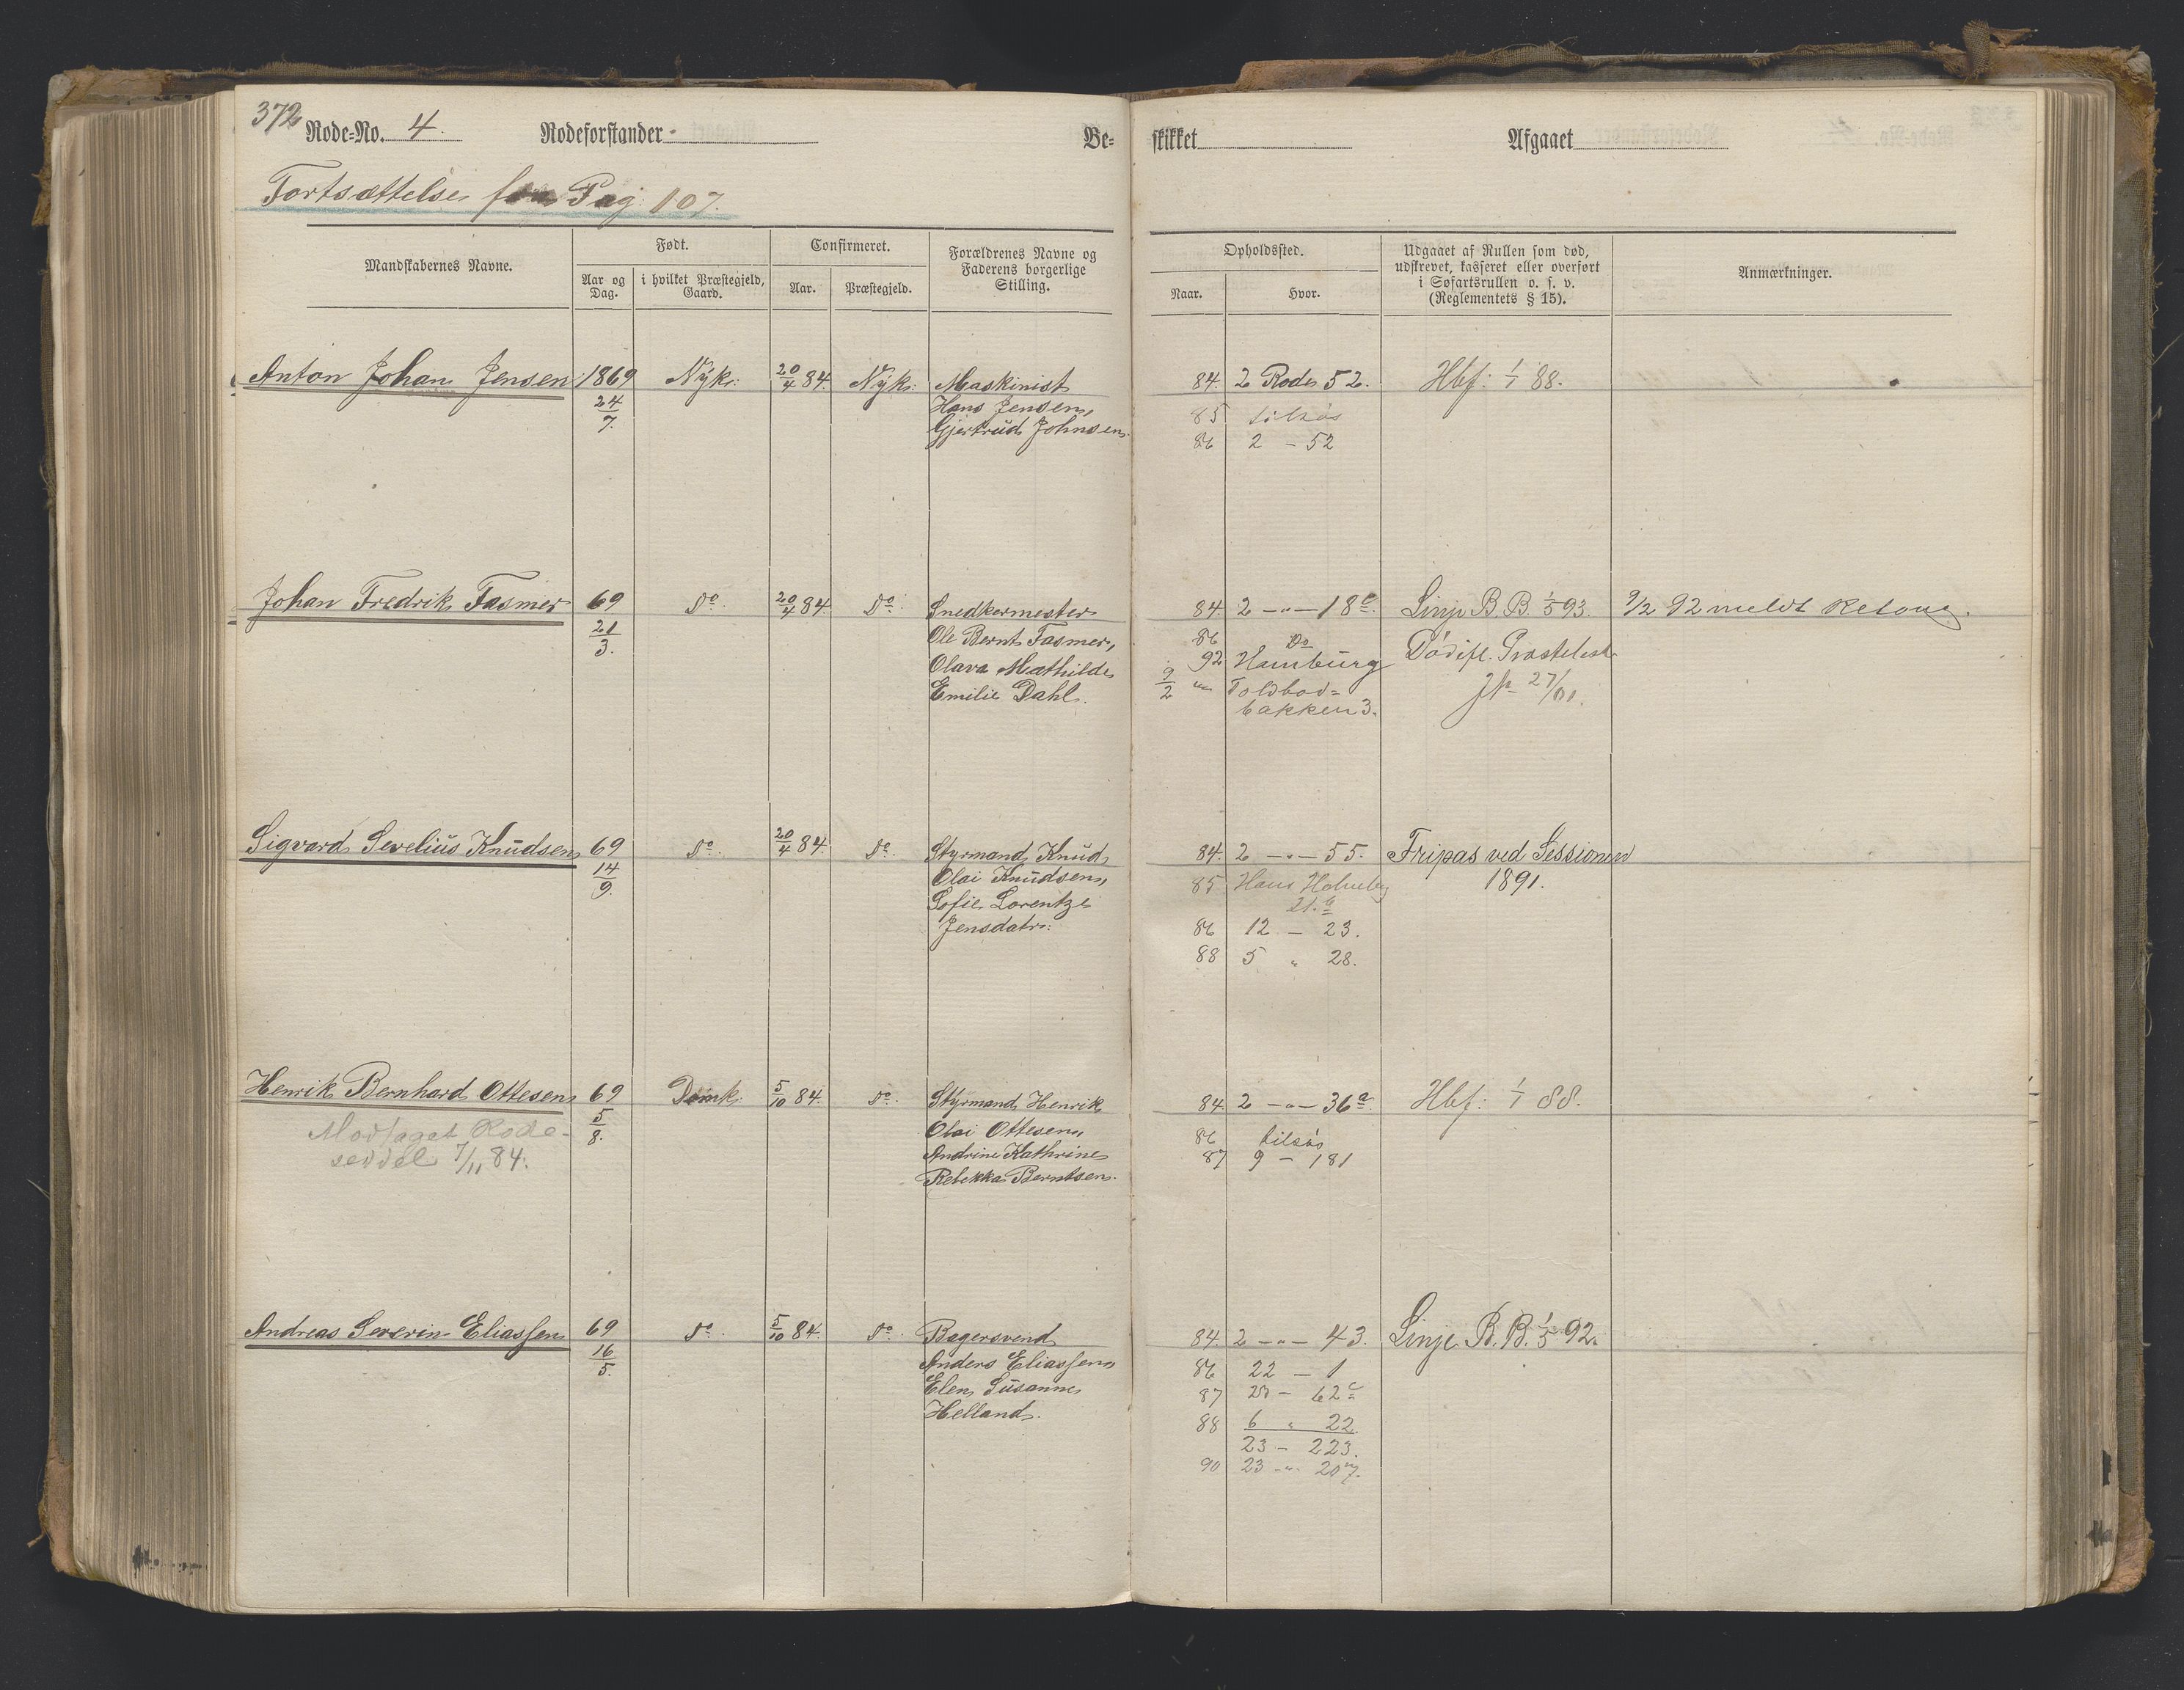 372 Rode-No. 4. Rodeforstander Be- skikket Afgaaet
Fortsættelse fra Pag: 107.
Mandskabernes Navne. Født. Confirmeret. Forældrenes Navne og Faderens borgerlige Stilling. Opholdssted. Udgaaet af Rullen som død, udskrevet, kasseret eller overført i Søfartsrullen o. s. v. (Reglementets § 15). Anmærkninger.
Aar og Dag. i hvilket Præstegjeld, Gaard. Aar. Præstegjeld. Naar. Hvor.
Anton Johan Jensen 1869 Nyk: 20/4 84. Nyk: Maskinist 84. 2 Rode 52. Hbf: 1/1 88.
24/7. Hans Jensen, 85 tilsøs
Gjertrud Johnsen. 86 2 - 52
Johan Fredrik Fasmer 69 Do. 20/4 84. Do. Snedkermester 84. 2 -"- 18c. Linje B.B. 1/5 93. 9/2 92 meldt Retour.
21/3. Ole Bernt Fasmer, 86 Do
Olava Mathilde 92 Hamburg Død ifl.
Emilie Dahl. 9/2 " Toldbod=
bakken 3.
Sigvard Sevelius Knudsen 69 Do. 20/4 84. Do. Styrmand Knud 84. 2 -"- 55. Fripas ved Sessionen
14/9. Olai Knudsen, 85 Hans 1891.
Sofie Lorentze 21.a
Jensdatr: 86 12 - 23.
88 5 " 28.
Henrik Bernhard Ottesen 69 Domk: 5/10 84. Do. Styrmand Henrik 84. 2 -"- 36a. Hbf: 1/1 88.
Modtaget Rode- 5/8. Olai Ottesen, 86 tilsøs
seddel 7/11 84. Andrine Kathrine 87 9 - 181
Rebekka Berntsen.
Andreas Severin Eliassen 69 Do. 5/10 84. Do. Bagersvend 84. 2 -"- 43. Linje B.B. 1/5 92.
16/5. Anders Eliassen, 86 22 - 1
Elen Susanne 87 20 - 62c
Helland. 88 6 " 22.
23 - 223.
90 23 -"- 207.